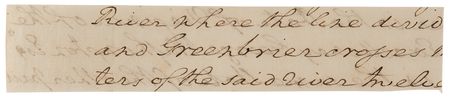 River where the line divid
and Greenbrier crosses
ters of the said river Twelve